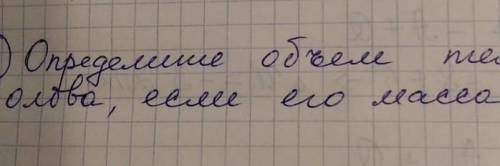 ) Определите объем те
олова, если его масса